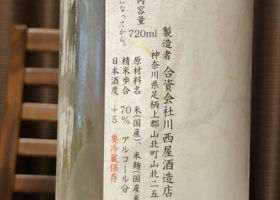 製造者 合資会社川西屋酒造店
神奈川県足柄上郡山北町山北二五
原材料名 米(国産)・米麹(国産米
精米歩合 70% アルコール分
日本酒度 +5 要冷蔵保存
内容量 720ml
になってから。